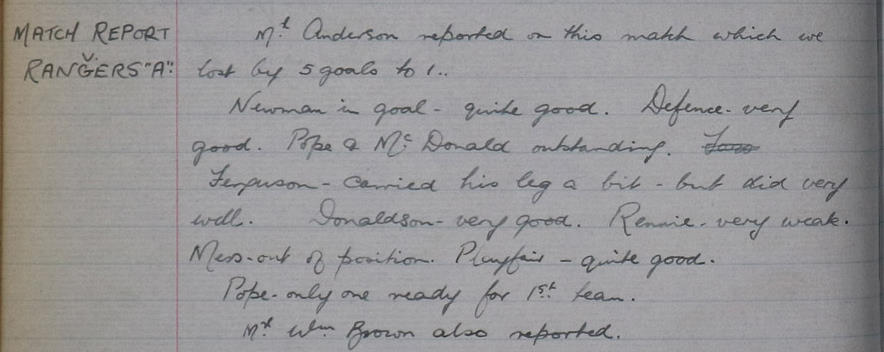 MATCH REPORT
V
RANGERS "A":
Mr. Anderson reported on this match which we
lost by 5 goals to 1..
Newman in goal - quite good. Defence - very
good. Pope & Mc Donald outstanding.
Ferguson - carried his leg a bit - but did very
well. Donaldson - very good. Rennie - very weak.
Mess - out of position. Playfair - quite good.
Pope - only one ready for 1st. team.
Mr. Wm Brown also reported.